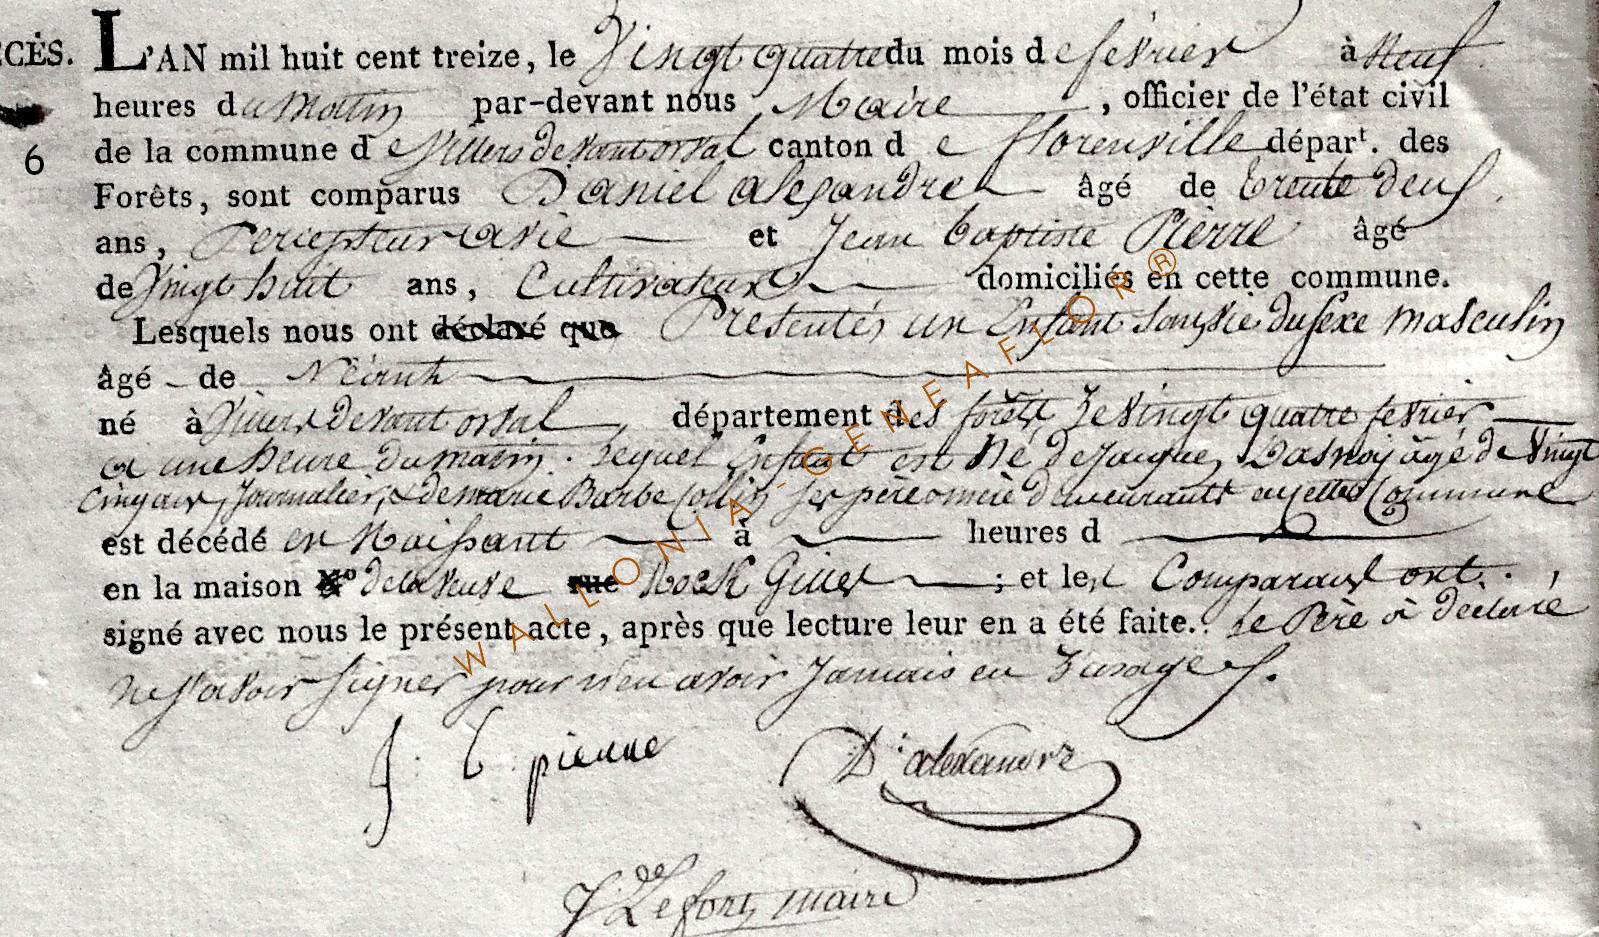 CCÈS. L'AN mil huit cent treize, le Vingt quatre du mois de fevrier à Neuf
heures du Matin par-devant nous Maire, officier de l'état civil
6 de la commune de Villers devant orval canton de florenville départ. des
Forêts, sont comparus Daniel alexandre âgé de trente deux
ans, Percepteur et Jean baptiste Pierre âgé
de Vingt huit ans, Cultivateur domiciliés en cette commune.
Lesquels nous ont déclaré que Presentés un Enfant sans vie du sexe masculin
âgé de Néant
né à Villers devant orval département des forêts Le vingt quatre fevrier
a une heure du matin. Lequel Enfant est Né de Jacque Dasnoÿ agé de Vingt
Cinq ans, Journalier, & de marie Barbe Collin ses père & mère demeurants en cette Commune
est décédé en Naissant à heures d
en la maison No de la veuve rue Rock Gillet; et les Comparaux ont
signé avec nous le présent acte, après que lecture leur en a été faite. Le Père à déclaré
ne savoir signer pour n'en avoir Jamais eu L'usage.
J. b pierre D. alexandre
J. Lefort maire
WALLONIA-GENEAFLOR®